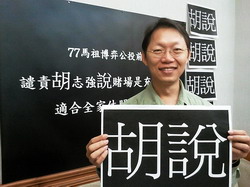 77馬祖博弈公投
譴責胡志強說賭場是
適合全家休
胡說
胡說
胡說
胡說